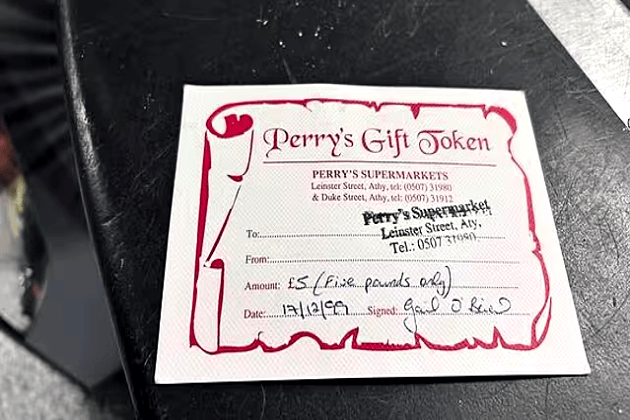 Perry's Gift Token
PERRY'S SUPERMARKETS
Leinster Street, Athy, tel: (0507) 31980
& Duke Street, Athy, tel: (0507) 31912
Perry's Supermarket
Leinster Street, Aty,
Tel.: 0507 31980
To:
From:
Amount: £5 (Five pounds only)
Date: 17/12/99 Signed: Gail O'Brien